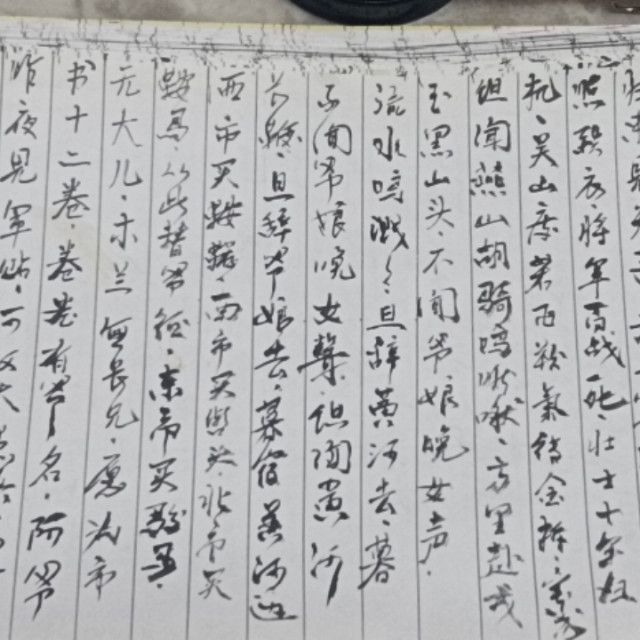 昨夜见军帖、可汗大
书十二卷、卷卷有爷名、阿爷
无大儿、木兰无长兄、愿为市
鞍马、从此替爷征、东市买骏马、
西市买鞍鞯、南市买辔头、北市买
长鞭、旦辞爷娘去、暮宿黄河边
不闻爷娘唤女声、但闻黄河
流水鸣溅溅、旦辞黄河去、暮
至黑山头、不闻爷娘唤女声、
但闻燕山胡骑鸣啾啾、万里赴戎
机、关山度若飞、朔气传金柝、寒
照铁衣、将军百战死、壮士十年归